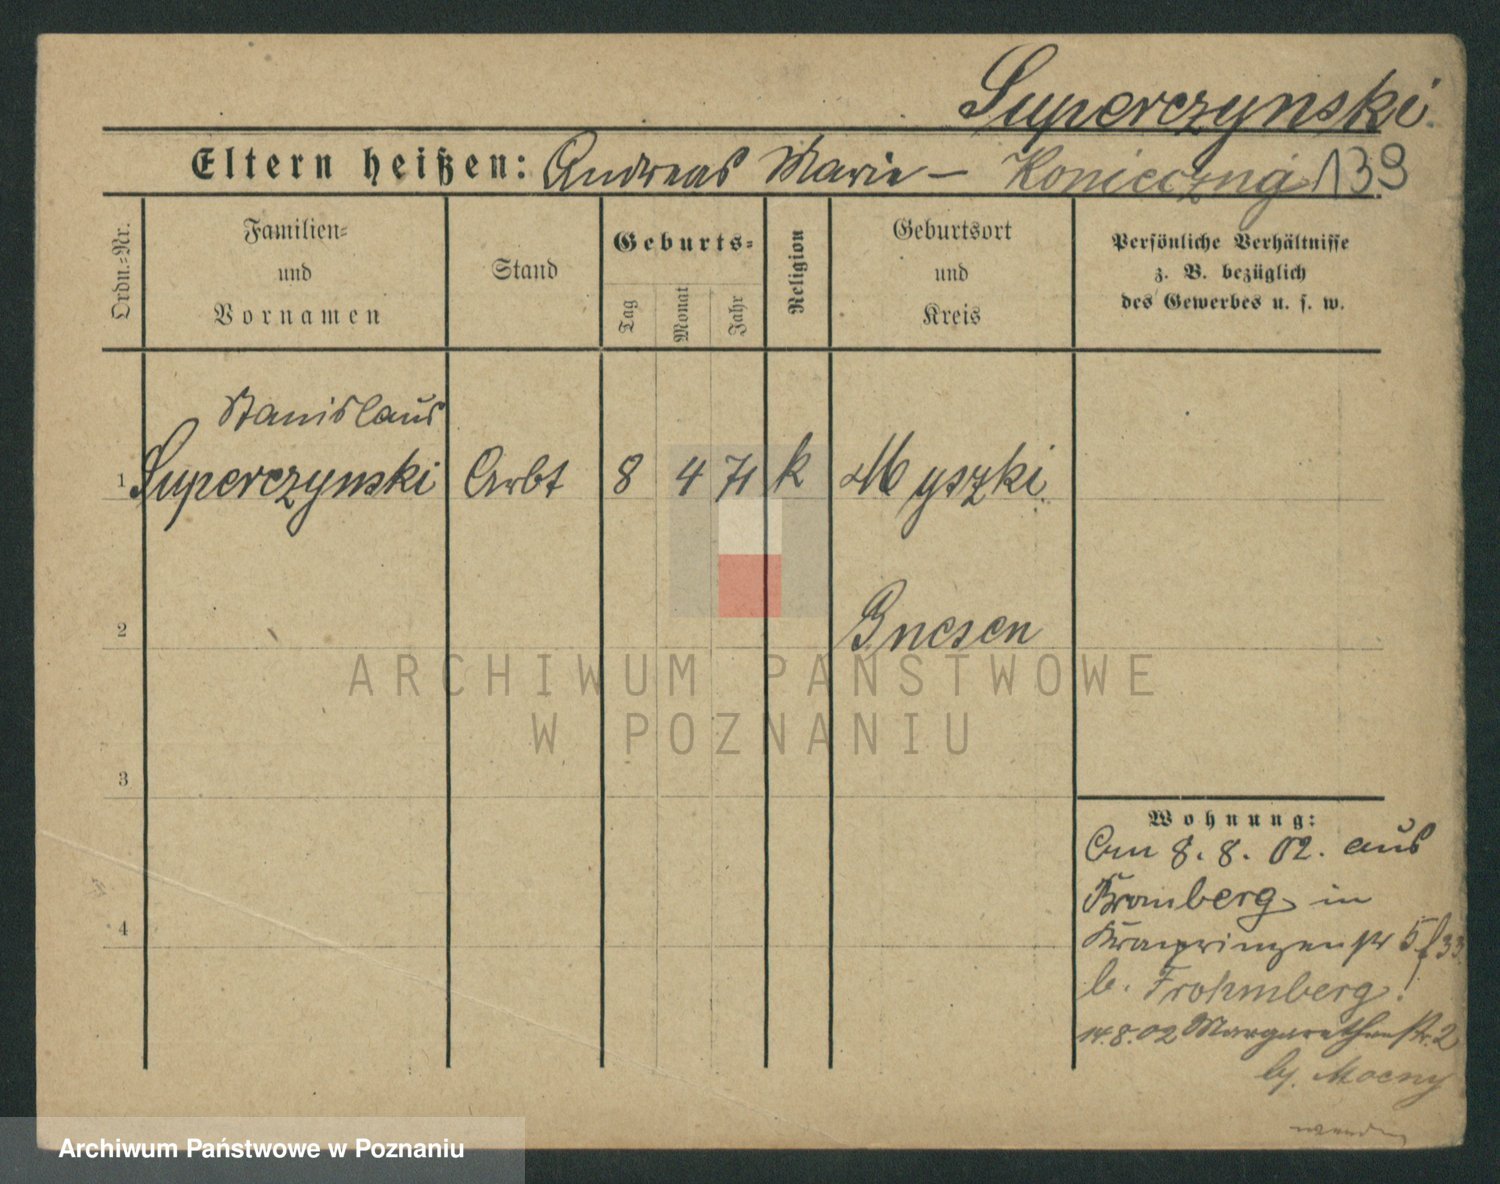 Superczynski
Eltern heißen: Andreas Marie – Konieczna 139
Ordn.=Nr.
Familien=
und
Vornamen
Stand
Geburts=
Tag
Monat
Jahr
Religion
Geburtsort
und
Kreis
Persönliche Verhältnisse
z. B. bezüglich
des Gewerbes u. s. w.
Stanislaus
1 Superczynski Arbt 8 4 71 k Myszki
2 Gnesen
ARCHIWUM PAŃSTWOWE
W POZNANIU
3
Wohnung:
Am 8. 8. 02. aus
Bromberg in
4 Kronprinzenstr 5
b. Frohmberg!
14.8.02 Margarethenstr. 2
b. Mocny
wenden
Archiwum Państwowe w Poznaniu